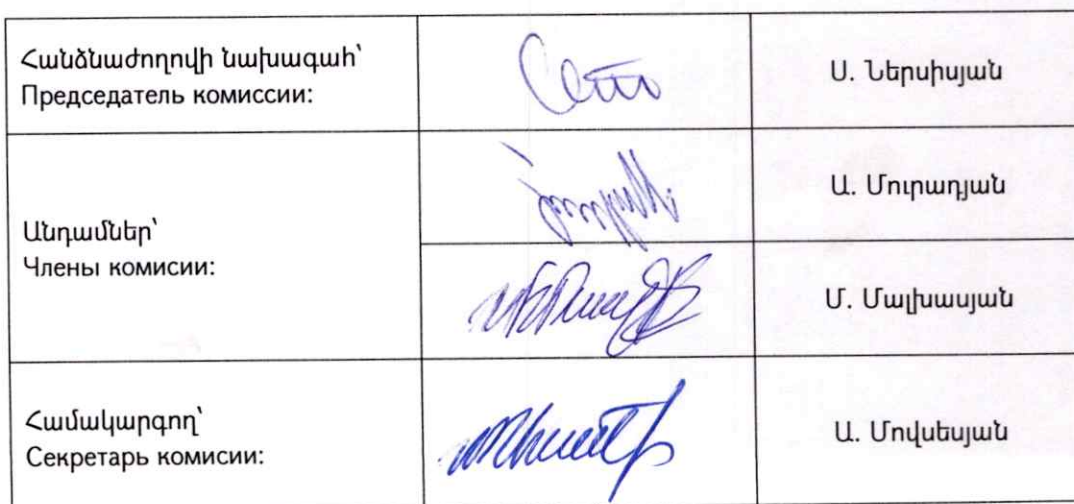 Հանձնաժողովի նախագահ՝
Председатель комиссии:
Ս. Ներսիսյան
Անդամներ՝
Члены комисии:
Ա. Մուրադյան
Մ. Մալխասյան
Համակարգող՝
Секретарь комисии:
Ա. Մովսեսյան